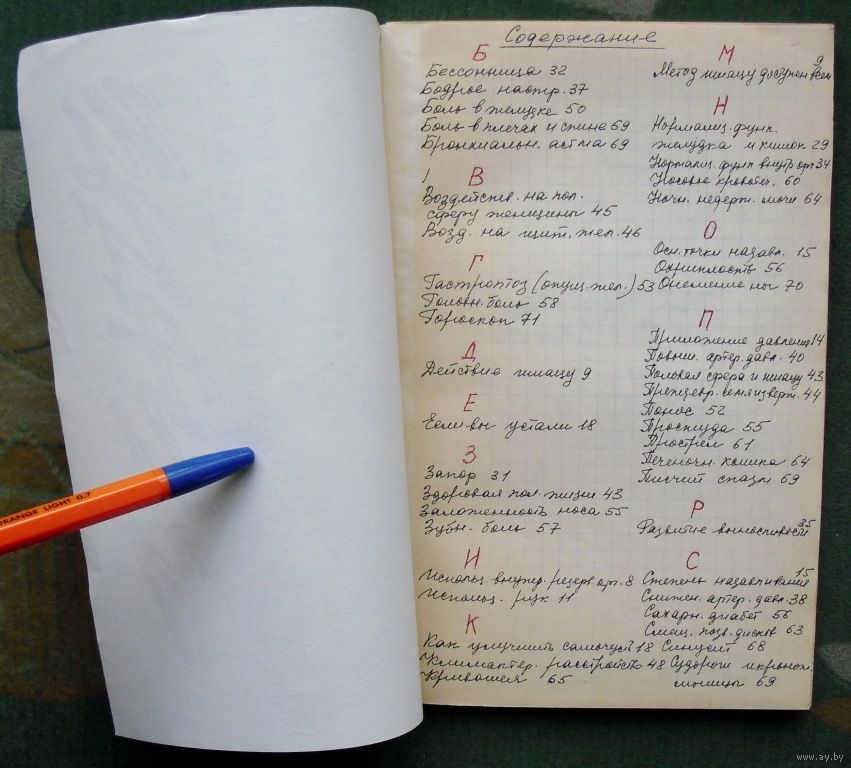 Содержание
Б
Бессонница 32
Бодрое настр. 37
Боль в желудке 50
Боль в плечах и спине 69
Бронхиальн. астма 69
В
Воздейств. на пол.
сферу женщины 45
Возд. на щит. жел. 46
Г
Гастроптоз (опущ. жел.) 53
Головн. боль 58
Гороскоп 71
Д
Действие шиацу 9
Е
Если вы устали 18
З
Запор 31
Здоровая пол. жизнь 43
Заложенность носа 55
Зубн. боль 57
И
Использ. внутр. резерв. орг. 8
Использ. рук 11
К
Как улучшить самочувст 18
Климактер. расстройств 48
Кривошея 65
М
Метод шиацу доступен всем 9
Н
Нормализ. функ.
желудка и кишок 29
Нормализ. функ внутр орг 34
Носовое кровотеч. 60
Ночн. недерж. мочи 64
О
Осн. точки надавл. 15
Охриплость 56
Онемение ног 70
П
Приложение давления 14
Повыш. артер. давл. 40
Половая сфера и шиацу 43
Преждевр. семяизверж. 44
Понос 52
Простуда 55
Прострел 61
Печеночн. колика 64
Писчий спазм 69
Р
Развитие выносливости 35
С
Степень надавливания 15
Снижен. артер. давл. 38
Сахарн. диабет 56
Смещ. позв. дисков 63
Синусит 68
Судороги икронож.
мышцы 69
ORANGE LIGHT 0,7
www.ay.by